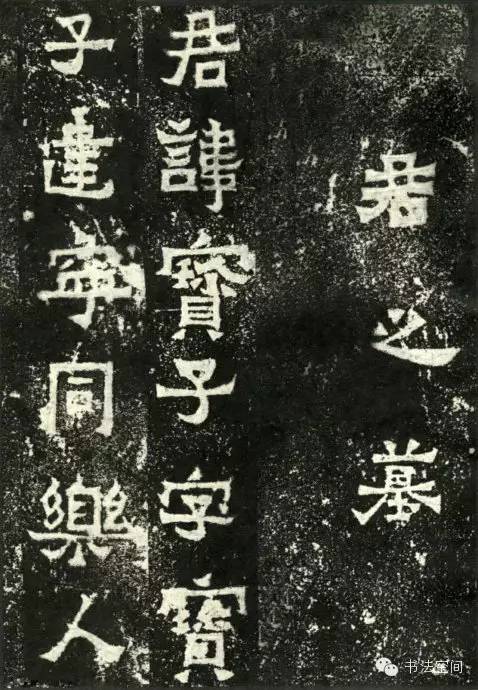 君之墓
君諱寶子字寶
子建寧同樂人
书法空间